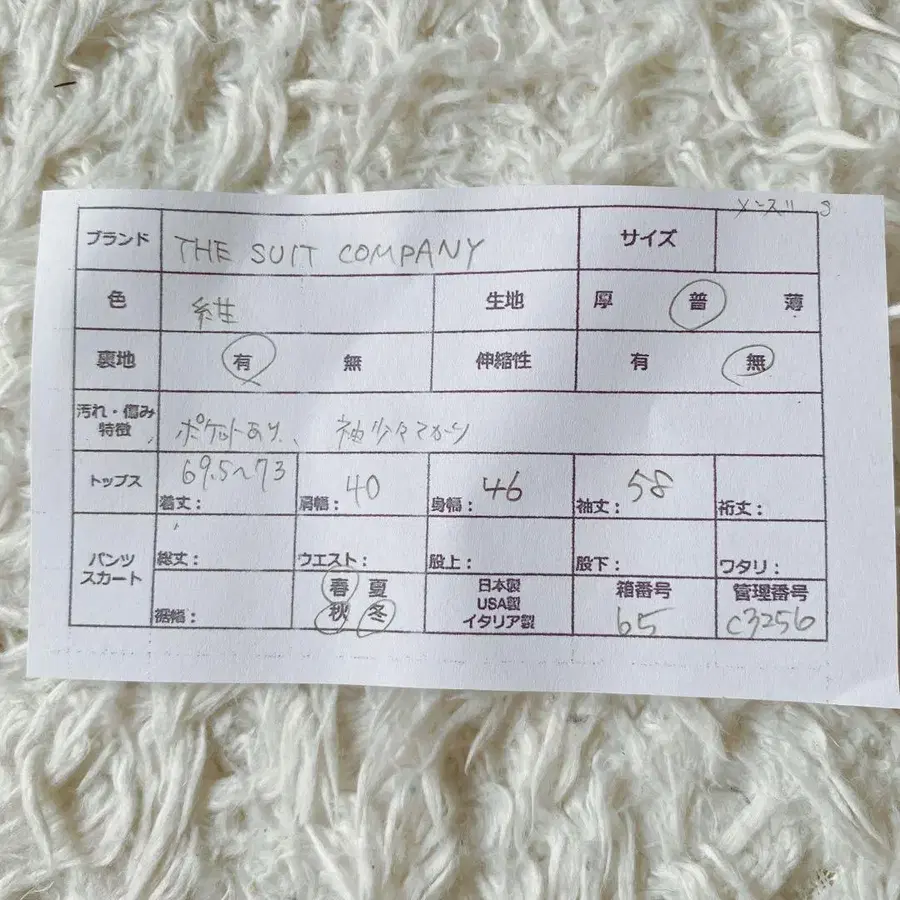 メンズ
ブランド THE SUIT COMPANY サイズ
色 紺 生地 厚 普 薄
裏地 有 無 伸縮性 有 無
汚れ・傷み
特徴 ポケットあり、袖
トップス 69.5〜73 着丈: 肩幅: 40 身幅: 46 袖丈: 58 裄丈:
パンツ
スカート 総丈: ウエスト: 股上: 股下: ワタリ:
裾幅: 春 夏
秋 冬
日本製
USA製
イタリア製
箱番号
65
管理番号
C3256